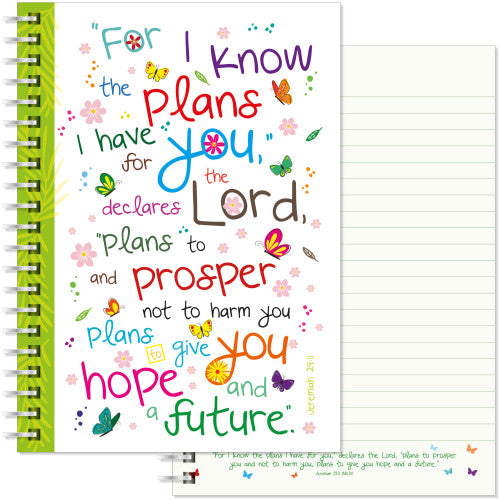 "For I know
the plans
I have
for you,"
the
declares Lord,
"plans to
and prosper
not to harm you
plans to give you
hope and
a future."
Jeremiah 29:11
"For I know the plans I have for you," declares the Lord, "plans to prosper
you and not to harm you, plans to give you hope and a future."